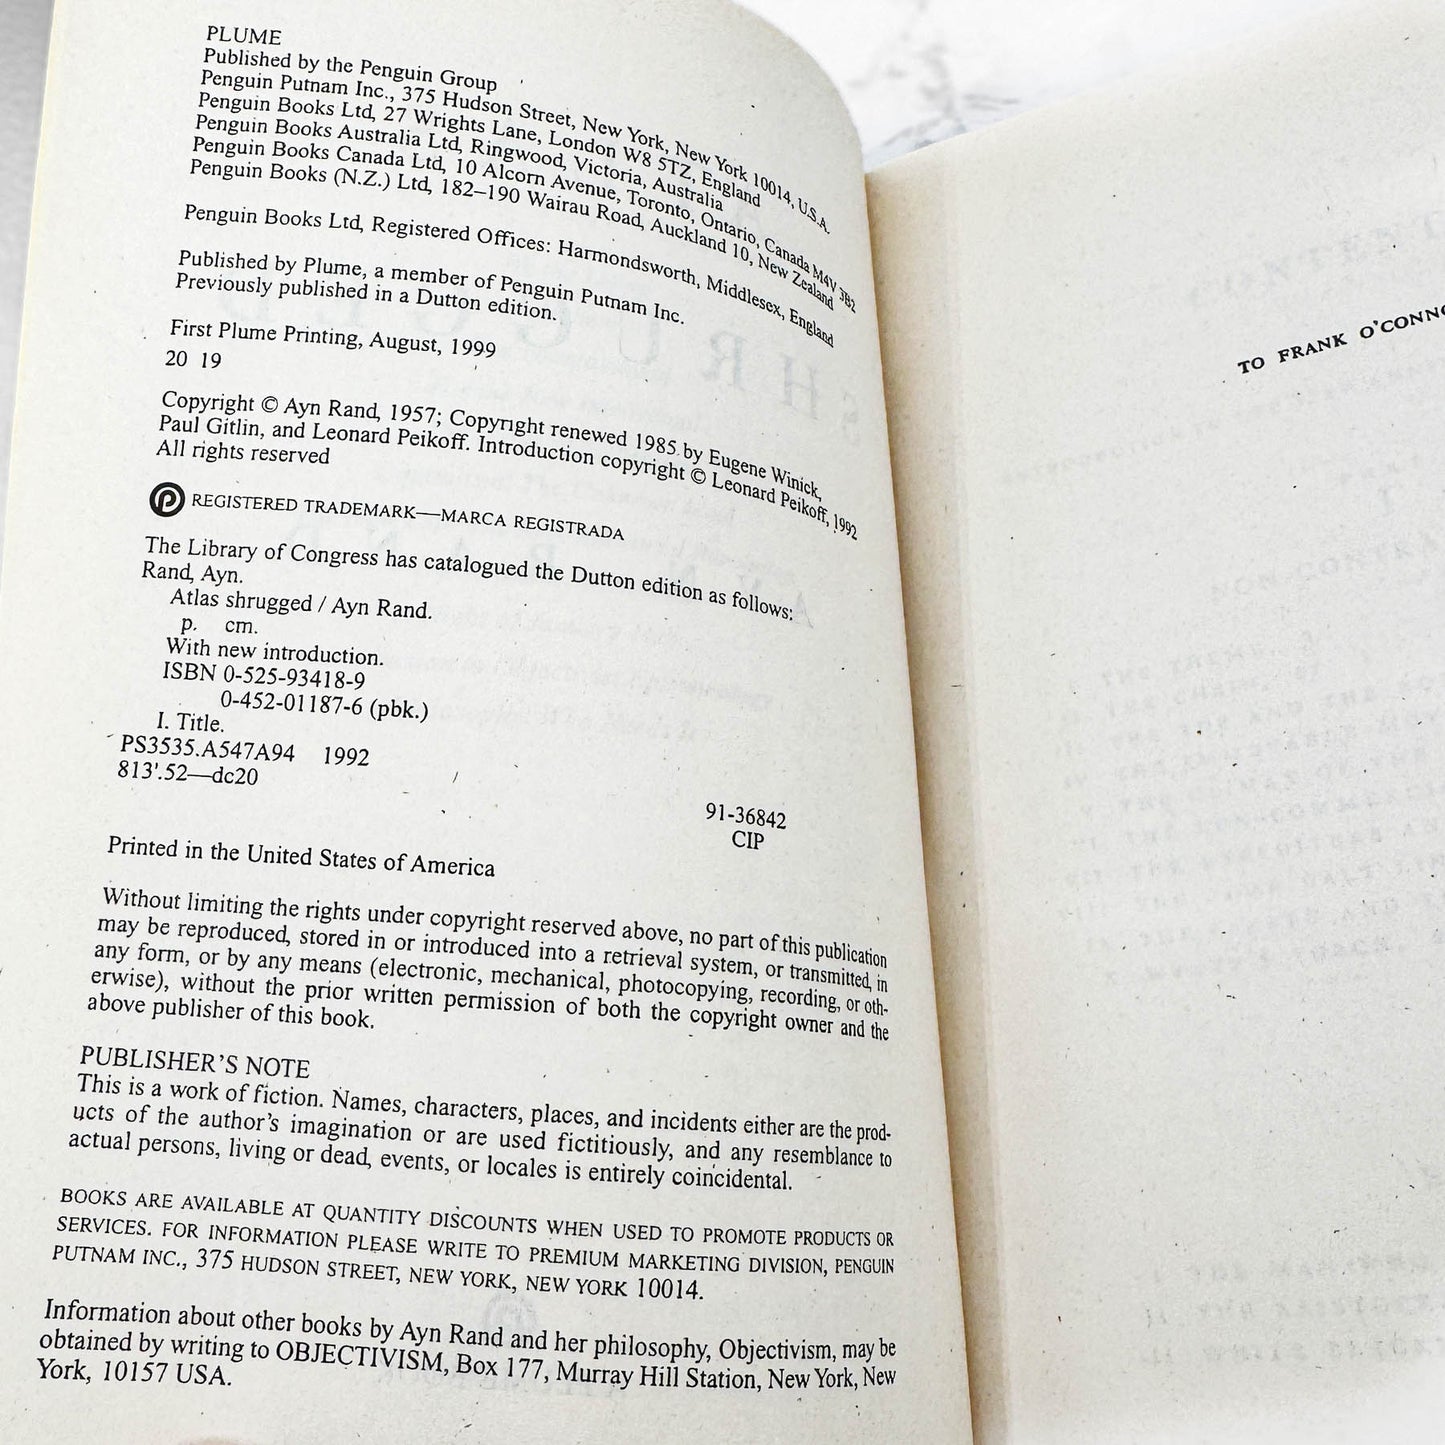 PLUME
Published by the Penguin Group
Penguin Putnam Inc., 375 Hudson Street, New York, New York 10014, U.S.A.
Penguin Books Ltd, 27 Wrights Lane, London W8 5TZ, England
Penguin Books Australia Ltd, Ringwood, Victoria, Australia
Penguin Books Canada Ltd, 10 Alcorn Avenue, Toronto, Ontario, Canada M4V 3B2
Penguin Books (N.Z.) Ltd, 182–190 Wairau Road, Auckland 10, New Zealand
Penguin Books Ltd, Registered Offices: Harmondsworth, Middlesex, England
Published by Plume, a member of Penguin Putnam Inc.
Previously published in a Dutton edition.
First Plume Printing, August, 1999
20 19
Copyright © Ayn Rand, 1957; Copyright renewed 1985 by Eugene Winick,
Paul Gitlin, and Leonard Peikoff. Introduction copyright © Leonard Peikoff, 1992
All rights reserved
REGISTERED TRADEMARK—MARCA REGISTRADA
The Library of Congress has catalogued the Dutton edition as follows:
Rand, Ayn.
Atlas shrugged / Ayn Rand.
p. cm.
With new introduction.
ISBN 0-525-93418-9
0-452-01187-6 (pbk.)
I. Title.
PS3535.A547A94 1992
813'.52—dc20
91-36842
CIP
Printed in the United States of America
Without limiting the rights under copyright reserved above, no part of this publication
may be reproduced, stored in or introduced into a retrieval system, or transmitted, in
any form, or by any means (electronic, mechanical, photocopying, recording, or oth-
erwise), without the prior written permission of both the copyright owner and the
above publisher of this book.
PUBLISHER'S NOTE
This is a work of fiction. Names, characters, places, and incidents either are the prod-
ucts of the author's imagination or are used fictitiously, and any resemblance to
actual persons, living or dead, events, or locales is entirely coincidental.
BOOKS ARE AVAILABLE AT QUANTITY DISCOUNTS WHEN USED TO PROMOTE PRODUCTS OR
SERVICES. FOR INFORMATION PLEASE WRITE TO PREMIUM MARKETING DIVISION, PENGUIN
PUTNAM INC., 375 HUDSON STREET, NEW YORK, NEW YORK 10014.
Information about other books by Ayn Rand and her philosophy, Objectivism, may be
obtained by writing to OBJECTIVISM, Box 177, Murray Hill Station, New York, New
York, 10157 USA.
TO FRANK O'CONNO